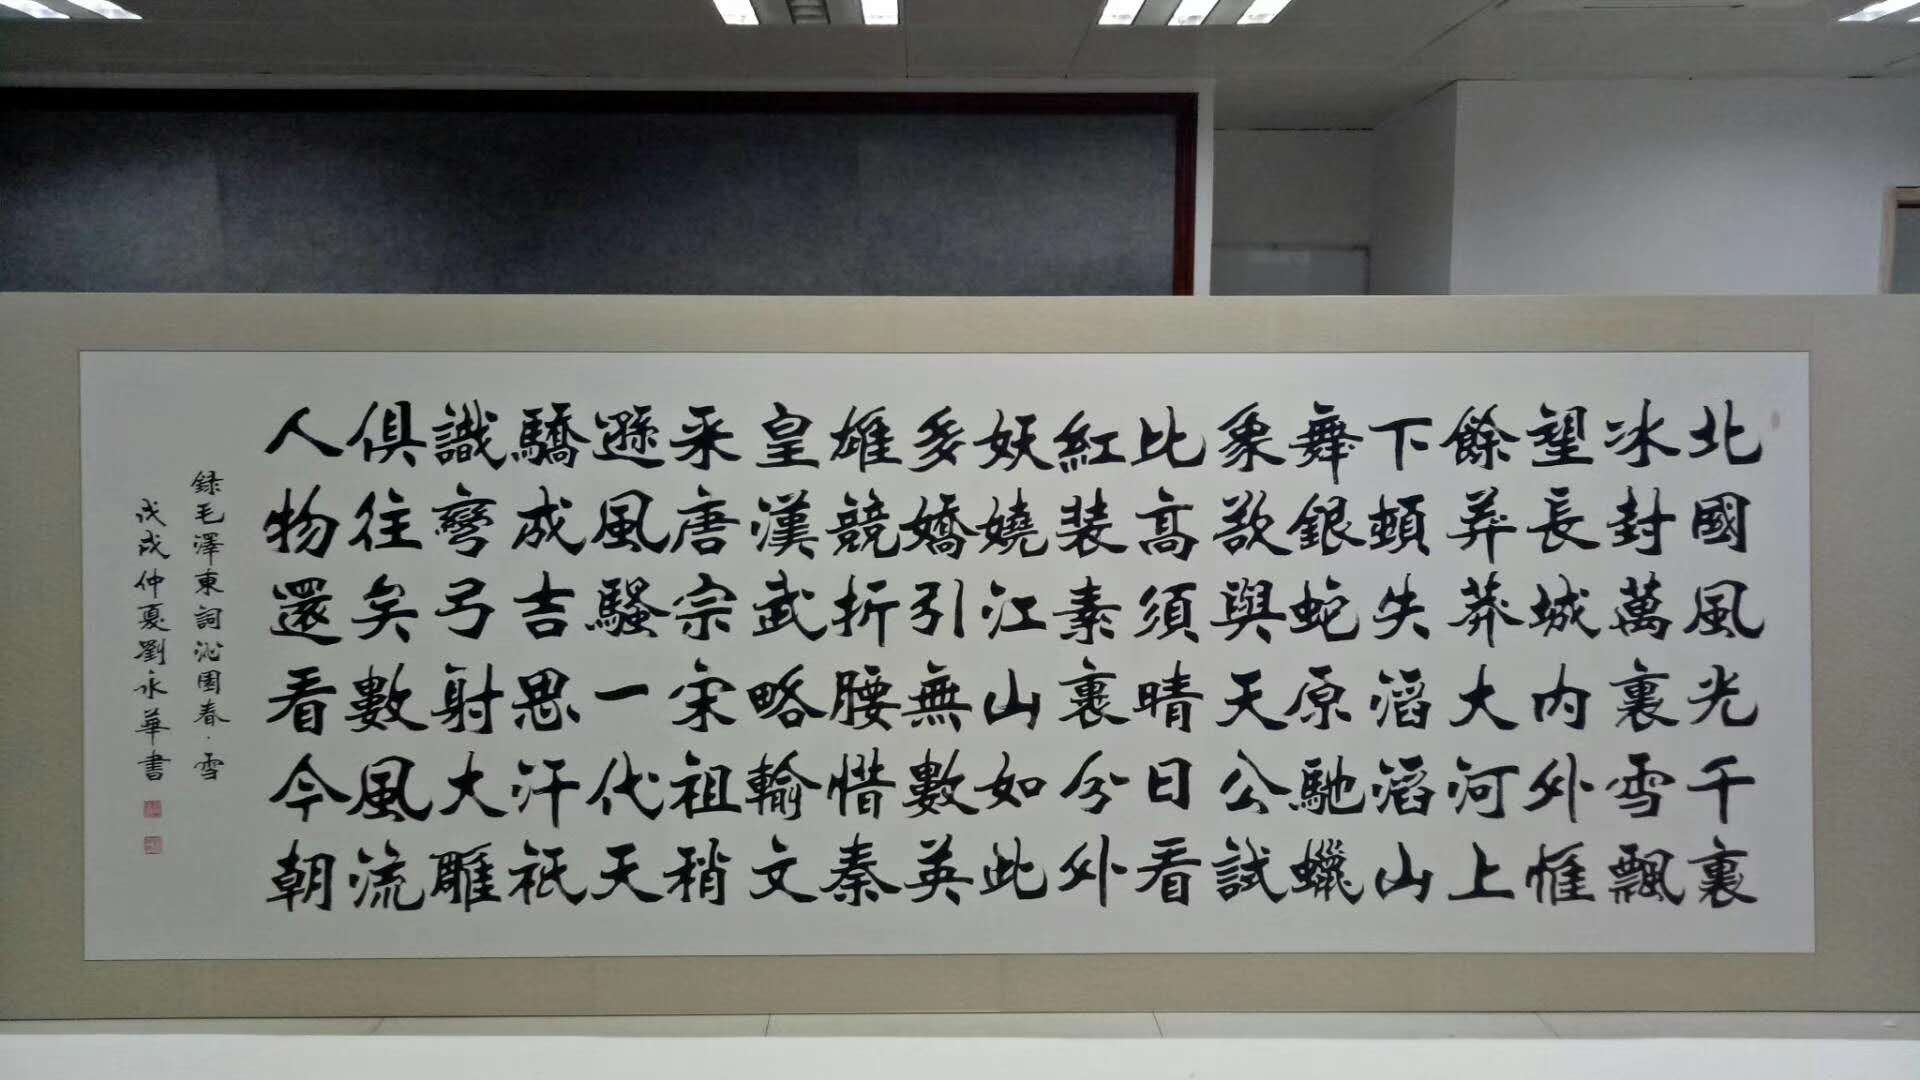 北國風光千裏
冰封萬裏雪飄
望長城内外惟
餘莽莽大河上
下頓失滔滔山
舞銀蛇原馳蠟
象欲與天公試
比高須晴日看
紅裝素裹分外
妖嬈江山如此
多嬌引無數英
雄競折腰惜秦
皇漢武略輸文
采唐宗宋祖稍
遜風騷一代天
驕成吉思汗祇
識彎弓射大雕
俱往矣數風流
人物還看今朝
録毛澤東詞沁園春·雪
戊戌仲夏劉永華書